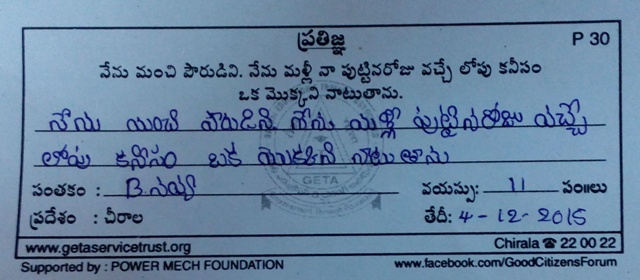 ప్రతిజ్ఞ P 30
నేను మంచి పౌరుడిని. నేను మళ్లీ నా పుట్టినరోజు వచ్చే లోపు కనీసం
ఒక మొక్కని నాటుతాను.
నేను మంచి పౌరుడిని నేను మళ్లీ పుట్టినరోజు వచ్చే
లోపు కనీసం ఒక మొక్కని నాటుతాను
సంతకం : B.నవ్య వయస్సు: 11 సం॥లు
ప్రదేశం : చీరాల తేదీ: 4-12-2015
GETA
www.getaservicetrust.org Chirala ☎ 22 00 22
Supported by : POWER MECH FOUNDATION www.facebook.com/GoodCitizensForum